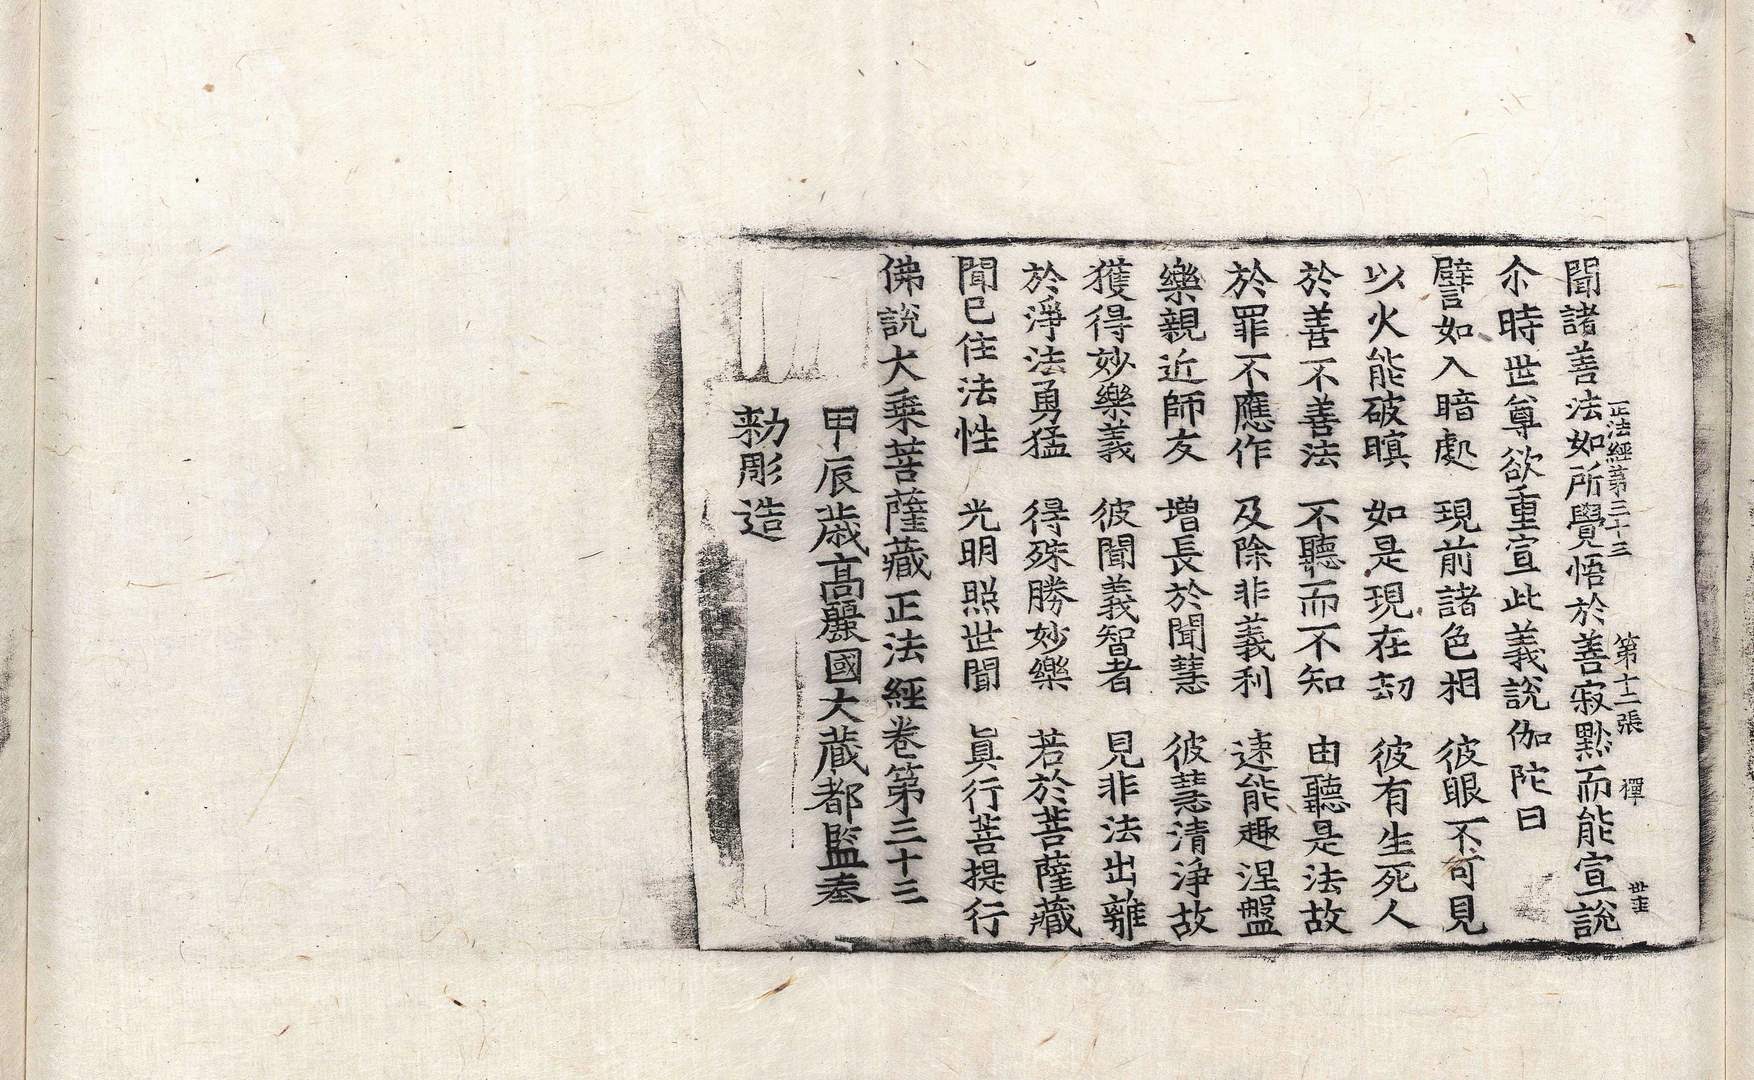 正法經第三十三 第十二張 禪
聞諸善法如所覺悟於善寂默而能宣說
尒時世尊欲重宣此義說伽陀曰
譬如入暗處 現前諸色相 彼眼不可見
以火能破暝 如是現在刧 彼有生死人
於善不善法 不聽而不知 由聽是法故
於罪不應作 及除非義利 速能趣涅盤
樂親近師友 增長於聞慧 彼慧清淨故
獲得妙樂義 彼聞義智者 見非法出離
於淨法勇猛 得殊勝妙樂 若於菩薩藏
聞已住法性 光明照世閒 眞行菩提行
佛說大乗菩薩藏正法經卷第三十三
甲辰歲高麗國大藏都監奉
勑彫造